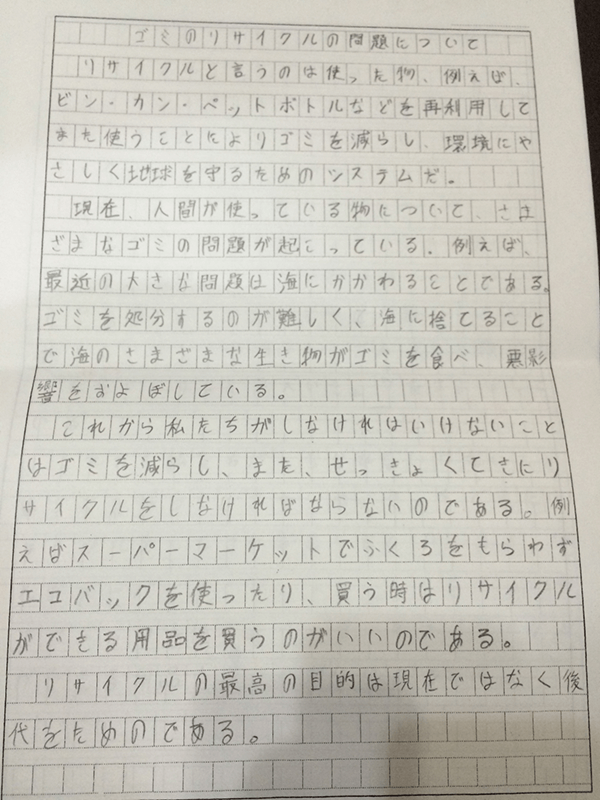 ゴミのリサイクルの問題について
リサイクルと言うのは使った物、例えば、
ビン・カン・ペットボトルなどを再利用して
また使うことによりゴミを減らし、環境にや
さしく地球を守るためのシステムだ。
現在、人間が使っている物について、さま
ざまなゴミの問題が起こっている。例えば、
最近の大きな問題は海にかかわることである。
ゴミを処分するのが難しく、海に捨てること
で海のさまざまな生き物がゴミを食べ、悪影
響をおよぼしている。
これから私たちがしなければいけないこと
はゴミを減らし、また、せっきょくてきにリ
サイクルをしなければならないのである。例
えばスーパーマーケットでふくろをもらわず
エコバックを使ったり、買う時はリサイクル
ができる用品を買うのがいいのである。
リサイクルの最高の目的は現在ではなく後
代をためのである。